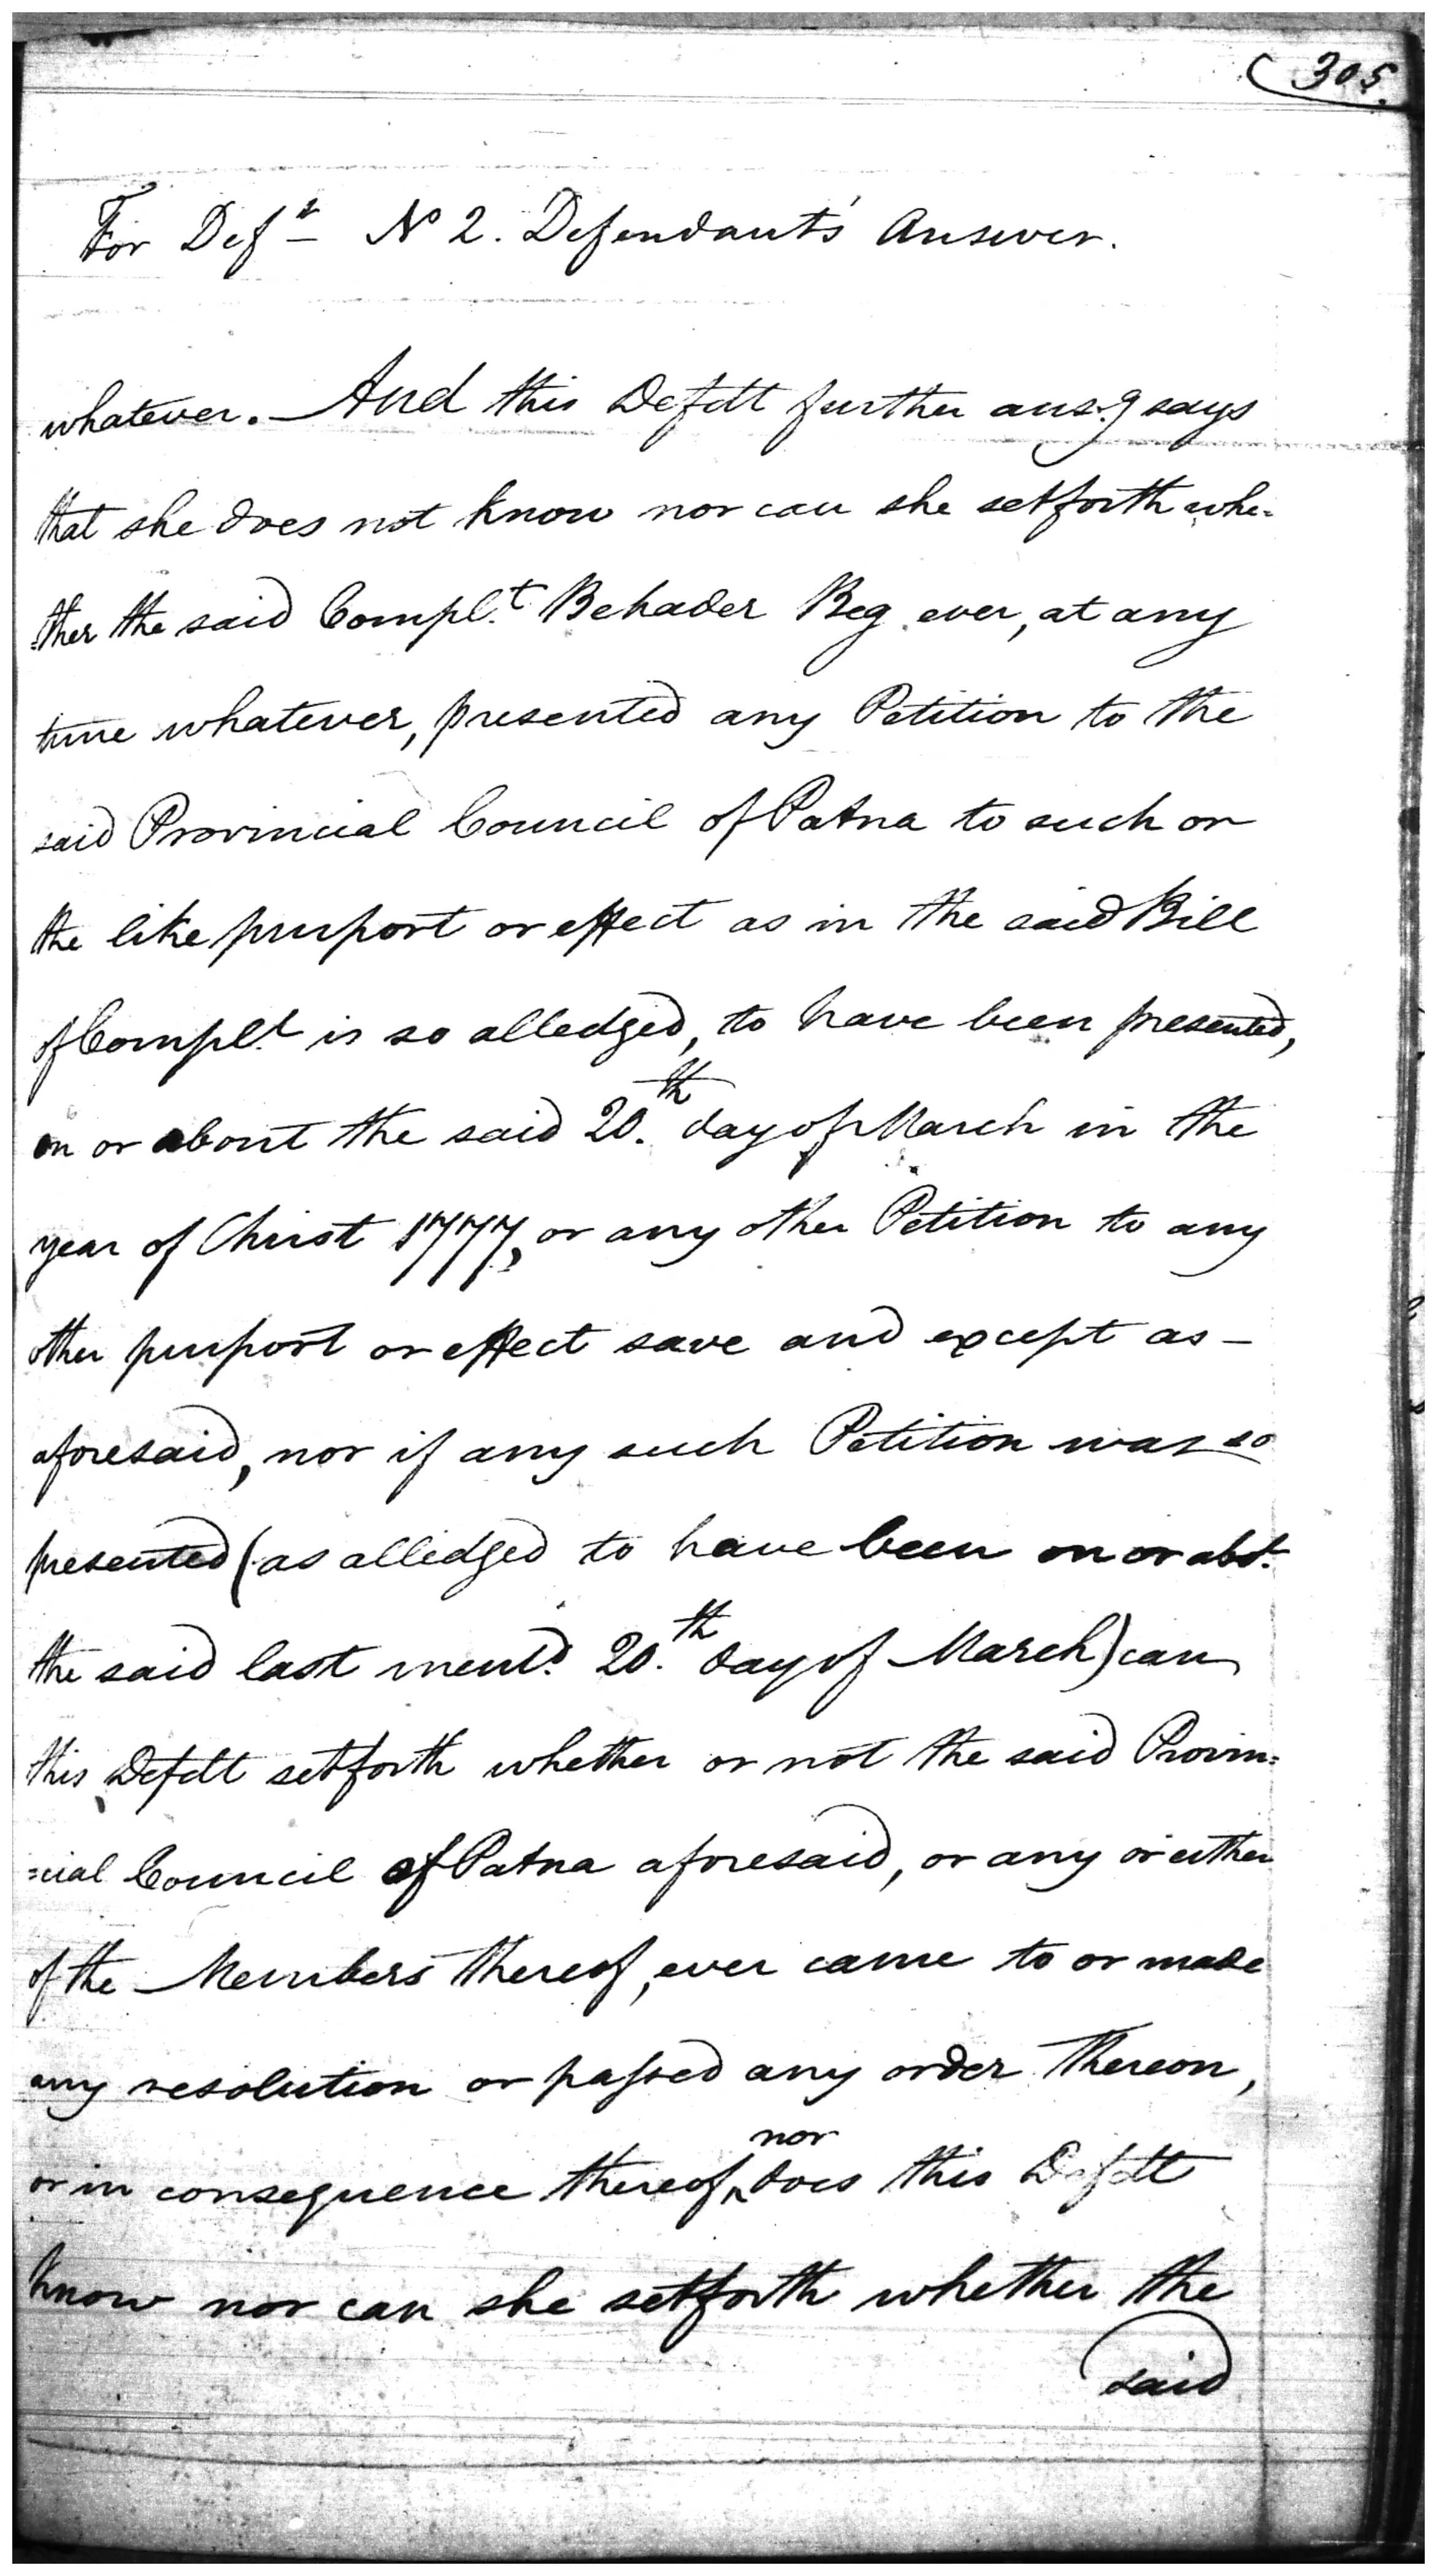 (305.
For Def.t N.o 2. Defendant's Answer.
whatever. And this Defdt further ans.g says
that she does not know nor can she setforth whe-
=ther the said Compl.t Behader Beg ever, at any
time whatever, presented any Petition to the
said Provincial Council of Patna to such or
the like purport or effect as in the said Bill
of Compl.t is so alledged, to have been presented,
on or about the said 20.th day of March in the
year of Christ 1777, or any other Petition to any
other purport or effect save and except as-
aforesaid, nor if any such Petition was so
presented (as alledged to have been on or abt.
the said last ment.d 20.th day of March) can
this Defdt setforth whether or not the said Provin=
=cial Council of Patna aforesaid, or any or either
of the Members thereof, ever came to or made
any resolution or passed any order thereon,
or in consequence thereof, nor does this Defdt
know nor can she setforth whether the
said